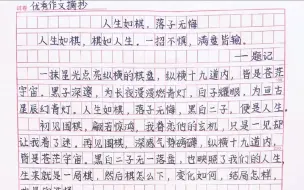 优秀作文摘抄
人生如棋,落子无悔
人生如棋,棋如人生。一招不慎,满盘皆输。
——题记
一抹星光点亮纵横的棋盘,纵横十九道内,皆是苍茫
宇宙。黑子深邃,为长夜漫漫燃青灯。白子耀眼,为亘古
星辰幻青灯。人生如棋,落子无悔,黑白二子,便是人生。
初见围棋,颇若惊鸿,我鲁莽他的玄机,只是一见却
让我着了迷。再见围棋,深感气势磅礴,纵横十九道内,
皆是苍茫宇宙,黑白二子无一落盘,也映照了我们的人生。
生来就是一局棋,然后棋怎么下,变化如何,结局怎样,